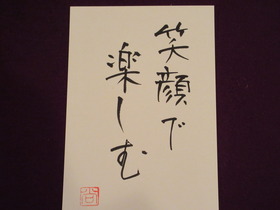 笑顔で
楽しむ
尚